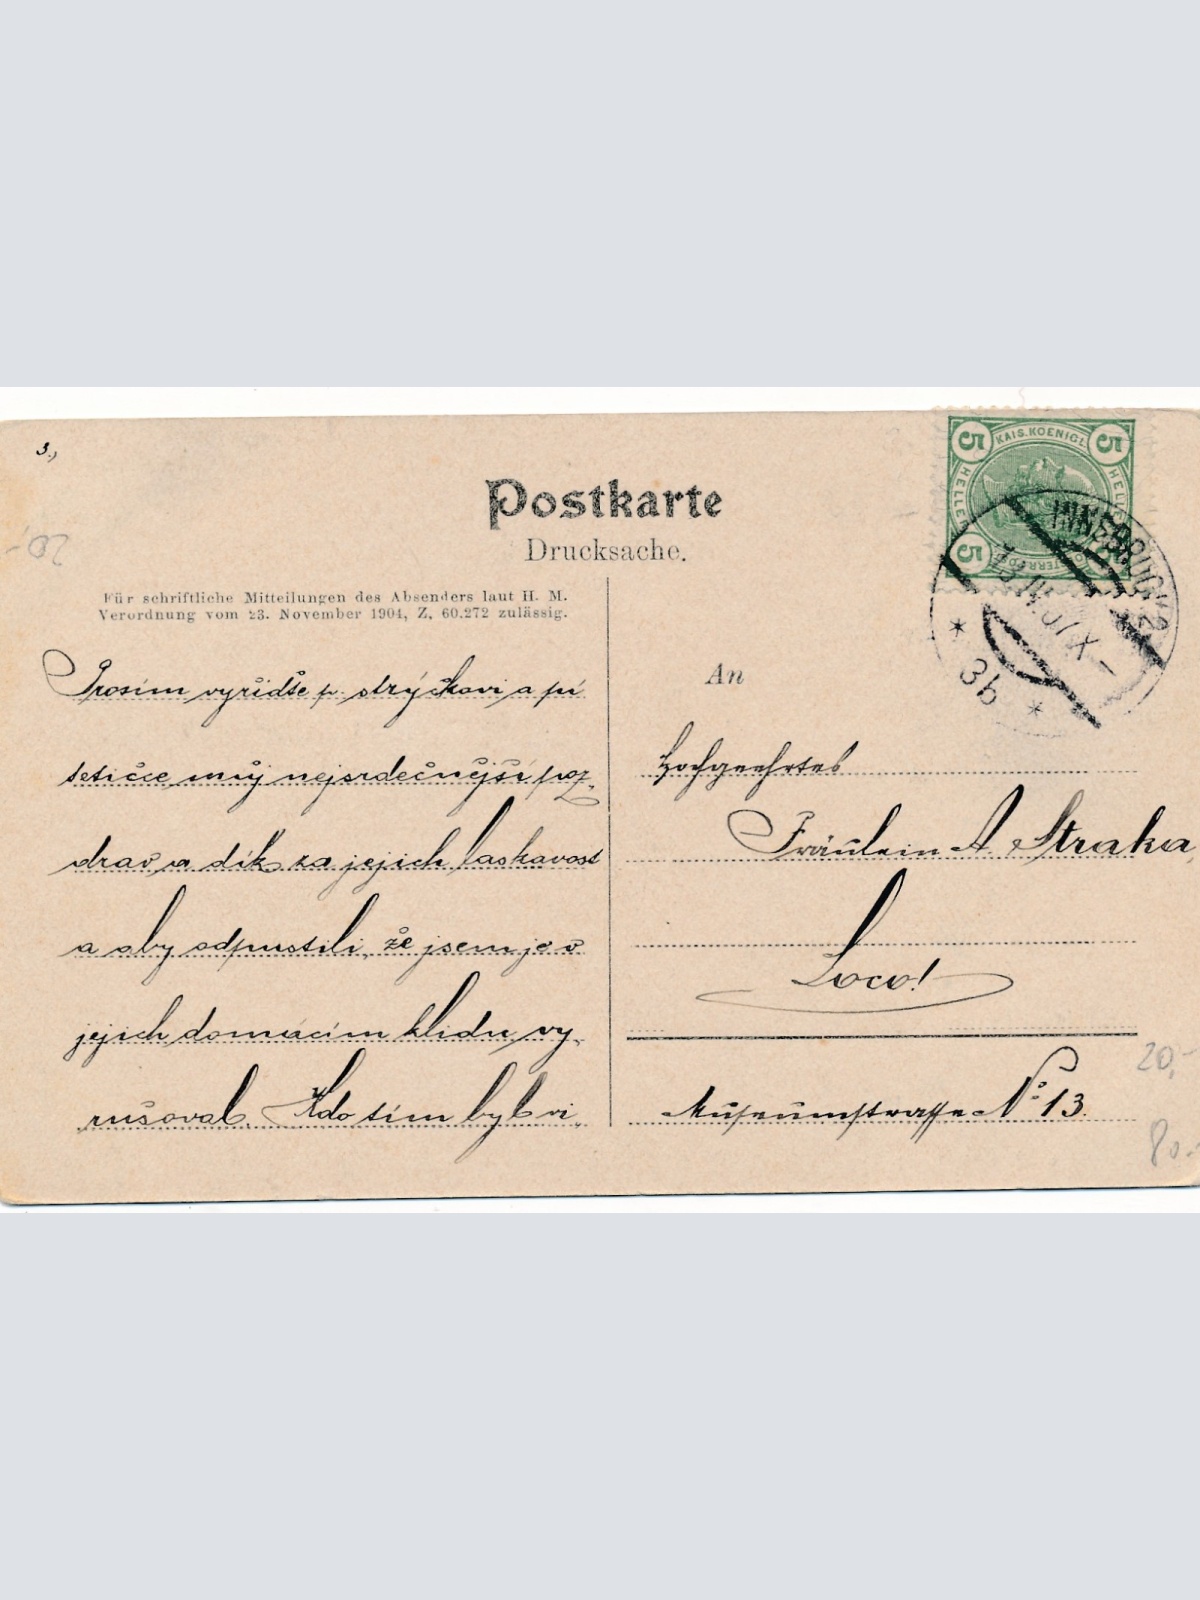 3.,
Postkarte
Drucksache.
Für schriftliche Mitteilungen des Absenders laut H. M.
Verordnung vom 23. November 1904, Z, 60.272 zulässig.
Prosím vyřiďte p. strýčkovi a pí
tetičce můj nejsrdečnější poz-
drav a dík za jejich laskavost
a aby odpustili, že jsem je v
jejich domácím klidu vy-
rušoval. Kdo tím byl vi
KAIS. KOENIGL.
5
5
5
HELLER
HELLER
INNSBRUCK 2
* 3b *
An
Hochgeehrtes
Fräulein A Straka,
Loco!
Museumstrasse No: 13.
20,-
20,-
80.-